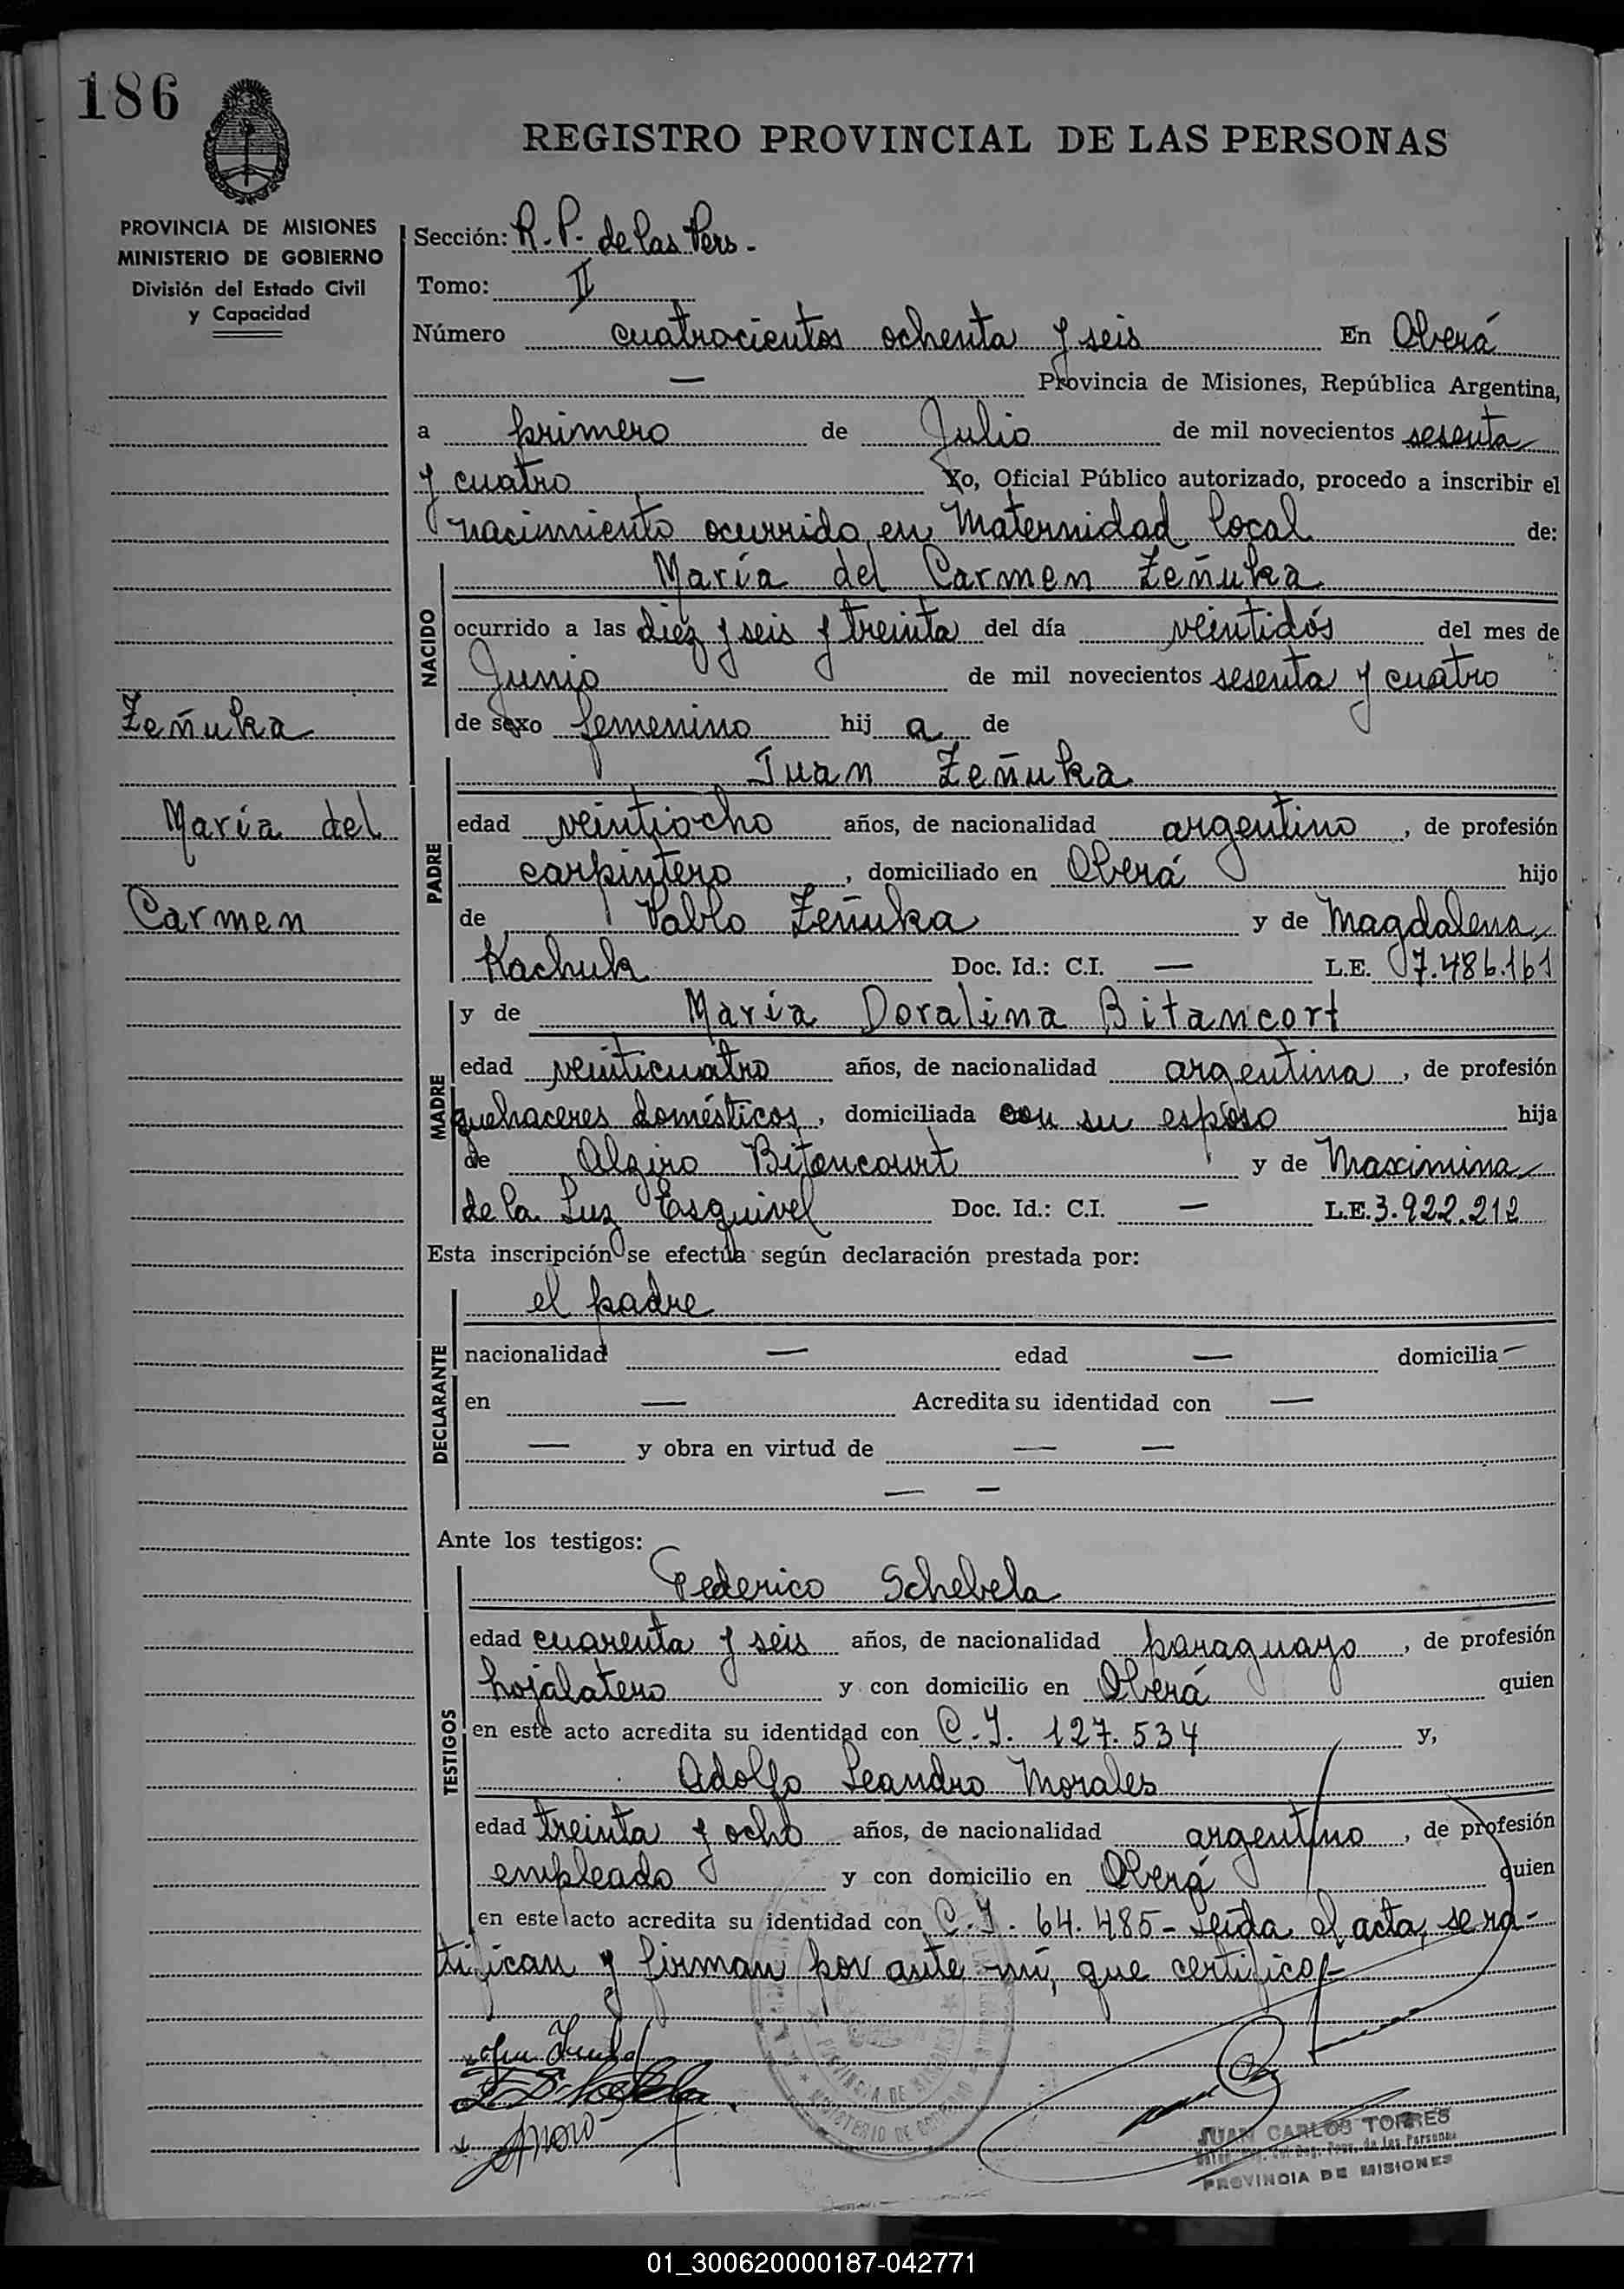 186
REGISTRO PROVINCIAL DE LAS PERSONAS
PROVINCIA DE MISIONES
MINISTERIO DE GOBIERNO
División del Estado Civil
y Capacidad
Zeñuka
María del
Carmen
Sección: R.P. de las Pers.
Tomo: II
Número cuatrocientos ochenta y seis En Oberá
— Provincia de Misiones, República Argentina,
a primero de Julio de mil novecientos sesenta
y cuatro Yo, Oficial Público autorizado, procedo a inscribir el
nacimiento ocurrido en Maternidad local de:
NACIDO
María del Carmen Zeñuka
ocurrido a las diez y seis y treinta del día veintidós del mes de
Junio de mil novecientos sesenta y cuatro
de sexo femenino hij a de
PADRE
Juan Zeñuka
edad veintiocho años, de nacionalidad argentino, de profesión
carpintero, domiciliado en Oberá hijo
de Pablo Zeñuka y de Magdalena
Kachuk Doc. Id.: C.I. — L.E. 7.486.161
MADRE
y de María Doralina Bitancort
edad veinticuatro años, de nacionalidad argentina, de profesión
quehaceres domésticos, domiciliada con su esposo hija
de Alziro Bitencourt y de Maximina
de la Luz Esquivel Doc. Id.: C.I. — L.E. 3.922.212
Esta inscripción se efectúa según declaración prestada por:
DECLARANTE
el padre
nacionalidad — edad — domicilia —
en — Acredita su identidad con —
— y obra en virtud de — —
— —
Ante los testigos:
TESTIGOS
Federico Schebela
edad cuarenta y seis años, de nacionalidad paraguayo, de profesión
hojalatero y con domicilio en Oberá quien
en este acto acredita su identidad con C.I. 127.534 y,
Adolfo Leandro Morales
edad treinta y ocho años, de nacionalidad argentino, de profesión
empleado y con domicilio en Oberá quien
en este acto acredita su identidad con C.I. 64.485- Leída el acta, se ra-
tifican y firman por ante mí, que certifico.-
PROVINCIA DE MISIONES
MINISTERIO DE GOBIERNO
JUAN CARLOS TORRES
de las Personas
PROVINCIA DE MISIONES
01_300620000187-042771